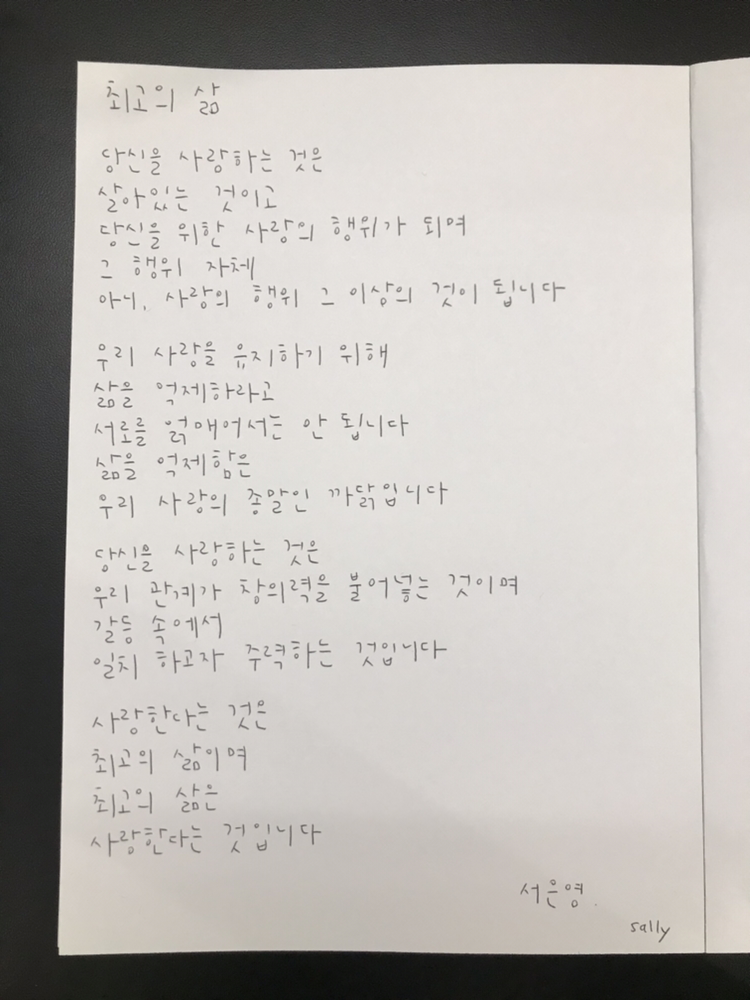 최고의 삶
당신을 사랑하는 것은
살아있는 것이고
당신을 위한 사랑의 행위가 되며
그 행위 자체
아니, 사랑의 행위 그 이상의 것이 됩니다
우리 사랑을 유지하기 위해
삶을 억제하라고
서로를 얽매어서는 안 됩니다
삶을 억제함은
우리 사랑의 종말인 까닭입니다
당신을 사랑하는 것은
우리 관계가 창의력을 불어넣는 것이며
갈등 속에서
일치 하고자 주력하는 것입니다
사랑한다는 것은
최고의 삶이며
최고의 삶은
사랑한다는 것입니다
서은영.
sally